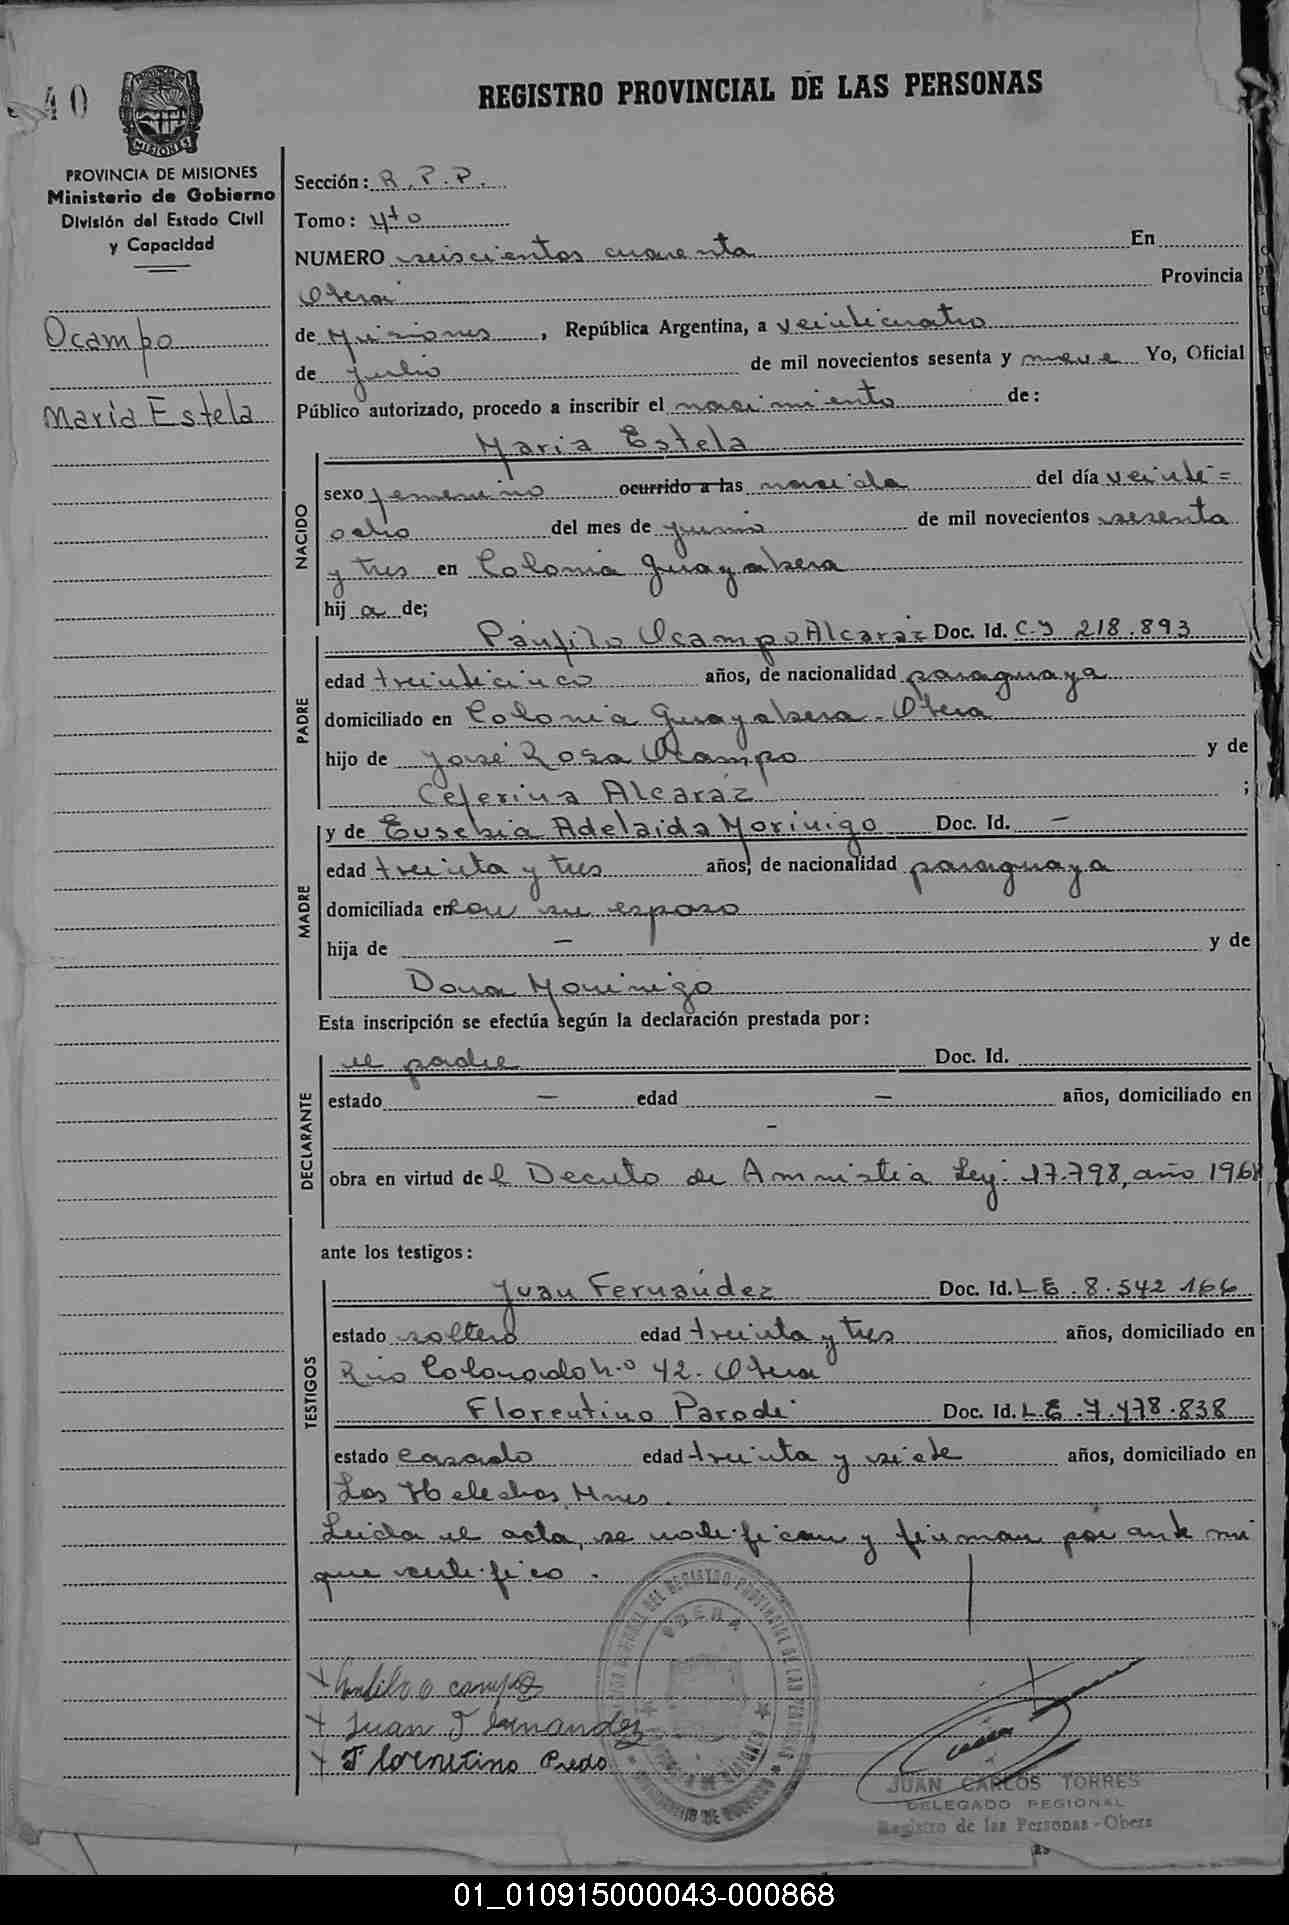 40
REGISTRO PROVINCIAL DE LAS PERSONAS
PROVINCIA DE MISIONES
MISIONES
PROVINCIA DE MISIONES
Ministerio de Gobierno
División del Estado Civil
y Capacidad
Ocampo
María Estela
Sección: R.P.P.
Tomo: 4to
NUMERO seiscientos cuarenta En
Oberá Provincia
de Misiones, República Argentina, a veinticuatro
de Julio de mil novecientos sesenta y nueve Yo, Oficial
Público autorizado, procedo a inscribir el nacimiento de:
María Estela
NACIDO
sexo femenino ocurrido a las nacida del día veinti=
ocho del mes de junio de mil novecientos sesenta
y tres en Colonia Guayabera
hij a de;
PADRE
Pánfilo Ocampo Alcaraz Doc. Id. C.I 218.893
edad treinticinco años, de nacionalidad paraguaya
domiciliado en Colonia Guayabera - Oberá
hijo de José Rosa Ocampo y de
Ceferina Alcaráz ;
MADRE
y de Eusebia Adelaida Morinigo Doc. Id. —
edad treinta y tres años, de nacionalidad paraguaya
domiciliada en con su esposo
hija de — y de
Dona Morinigo
Esta inscripción se efectúa según la declaración prestada por:
DECLARANTE
el padre Doc. Id.
estado — edad — años, domiciliado en
-
obra en virtud de l Decreto de Amnistia Ley: 17.798, año 1968
ante los testigos:
TESTIGOS
Juan Fernández Doc. Id. L E . 8.542 166
estado soltero edad treinta y tres años, domiciliado en
Río Colorado N.o 42 - Oberá
Florentino Parodi Doc. Id. L.E .7.478.838
estado casado edad treinta y siete años, domiciliado en
Los Helechos, Mnes.
Leida el acta, se notifican y firman por ante mi
que certifico.
OBERA
Juan F Fernandez
Florentino
JUAN CARLOS TORRES
DELEGADO REGIONAL
Registro de las Personas - Obera
01_010915000043-000868